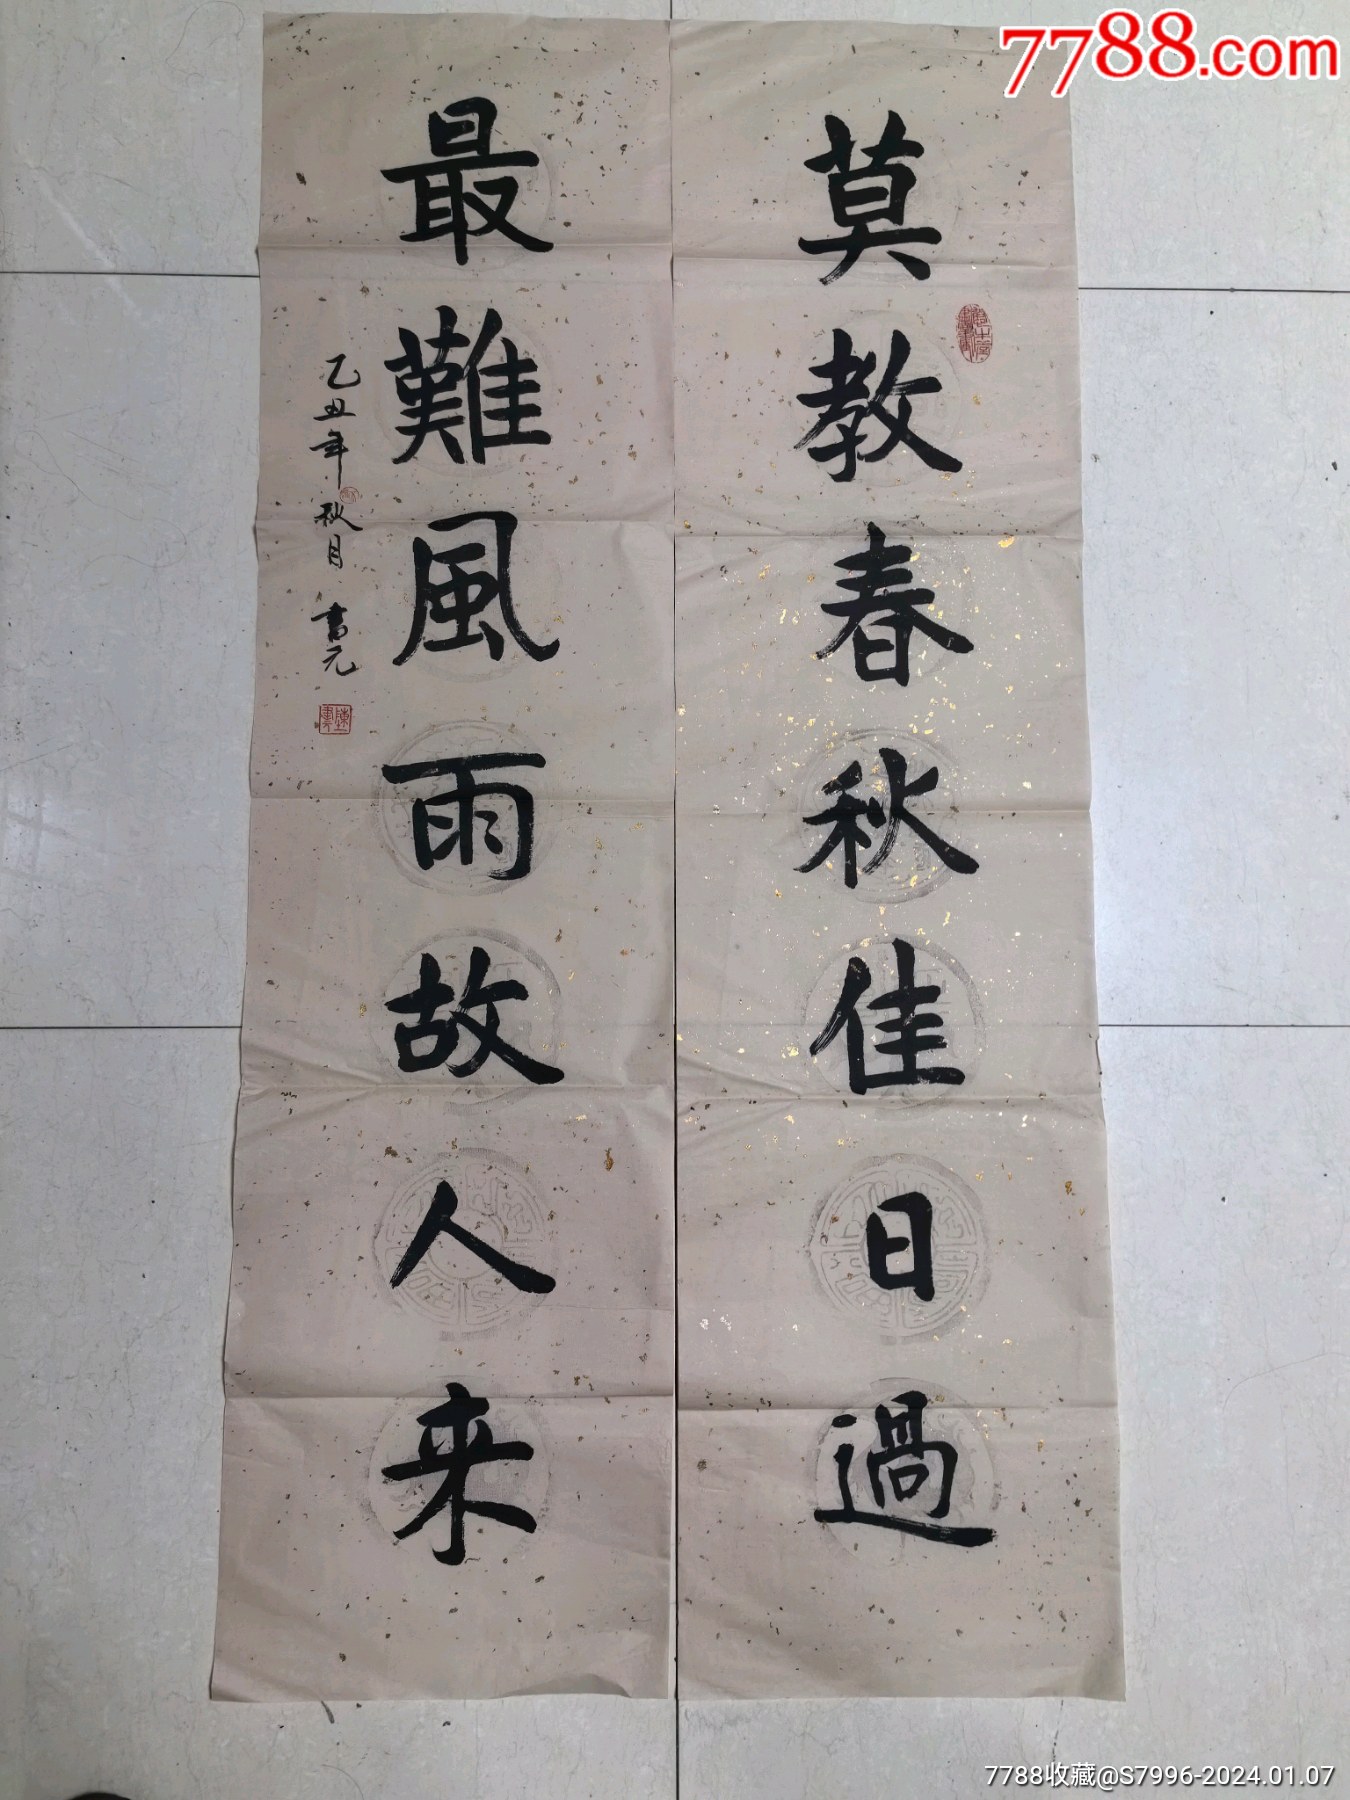 7788.com
莫教春秋佳日過
最難風雨故人来
乙丑年秋月 書元
7788收藏@S7996-2024.01.07